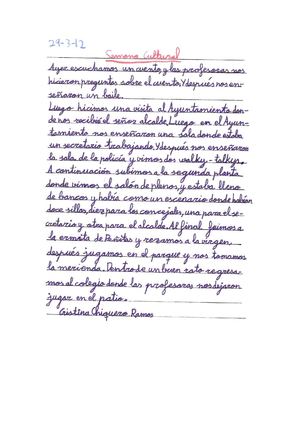 29-3-12
Semana Cultural
Ayer escuchamos un cuento, y las profesoras nos
hicieron preguntas sobre el cuento. Y después nos en-
señaron un baile.
Luego hicimos una visita al Ayuntamiento don-
de nos recibió el señor alcalde, Luego en el Ayun-
tamiento nos enseñaron una sala donde estaba
un secretario trabajando. Y después nos enseñaron
la sala de la policía y vimos dos walky-talkys.
A continuación subimos a la segunda planta
donde vimos el salón de plenos, y estaba lleno
de bancos y había como un escenario donde habían
doce sillas, diez para los concejales, una para el se-
cretario y otra para el alcalde. Al final fuimos a
la ermita de Peñitas y rezamos a la virgen,
después jugamos en el parque y nos tomamos
la merienda. Dentro de un buen rato regresa-
mos al colegio donde las profesoras nos dejaron
jugar en el patio.
Cristina Chiquero Ramos